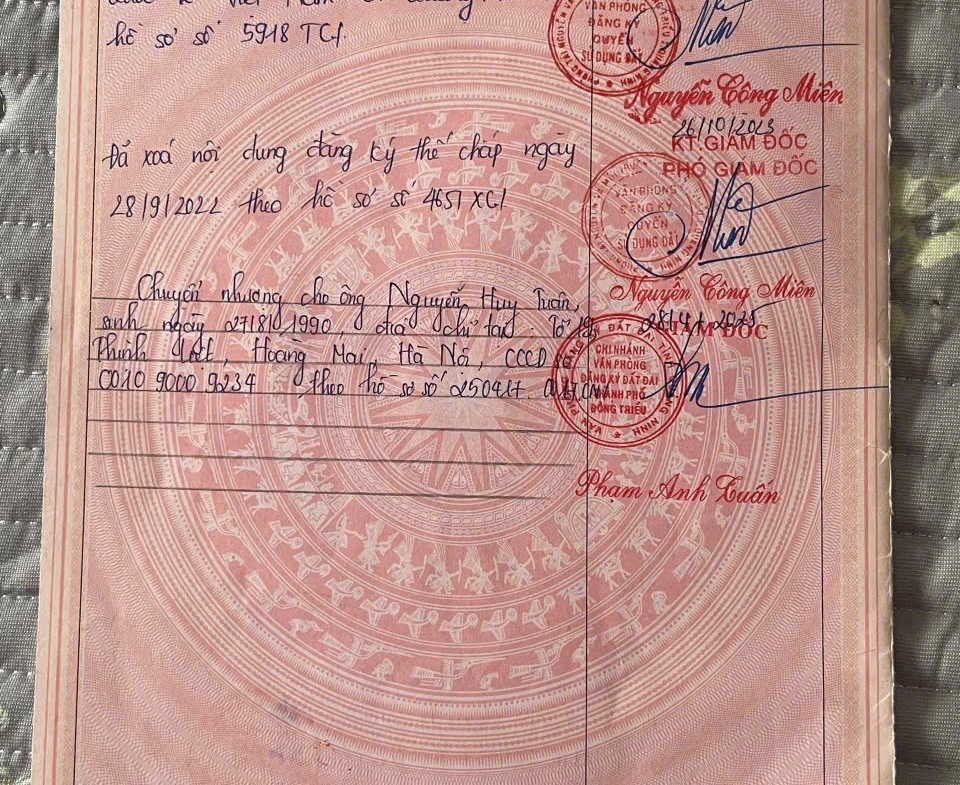 hồ sơ số 5918 TC/.
VĂN PHÒNG
ĐĂNG KÝ
QUYỀN
SỬ DỤNG ĐẤT
Nguyễn Công Miên
Đã xoá nội dung đăng ký thế chấp ngày
28/9/2022 theo hồ sơ số 4651 XC/.
26/10/2023
KT.GIÁM ĐỐC
PHÓ GIÁM ĐỐC
VĂN PHÒNG
ĐĂNG KÝ
QUYỀN
SỬ DỤNG ĐẤT
Nguyễn Công Miên
Chuyển nhượng cho ông Nguyễn Huy Tuân,
sinh ngày 27/8/1990, địa chỉ tại: Tổ 19,
Thịnh Liệt, Hoàng Mai, Hà Nội, CCCD
0010 9000 9234 theo hồ sơ số
28/4/2025
GIÁM ĐỐC
CHI NHÁNH
VĂN PHÒNG
ĐĂNG KÝ ĐẤT ĐAI
THÀNH PHỐ
ĐÔNG TRIỀU
Phạm Anh Tuấn